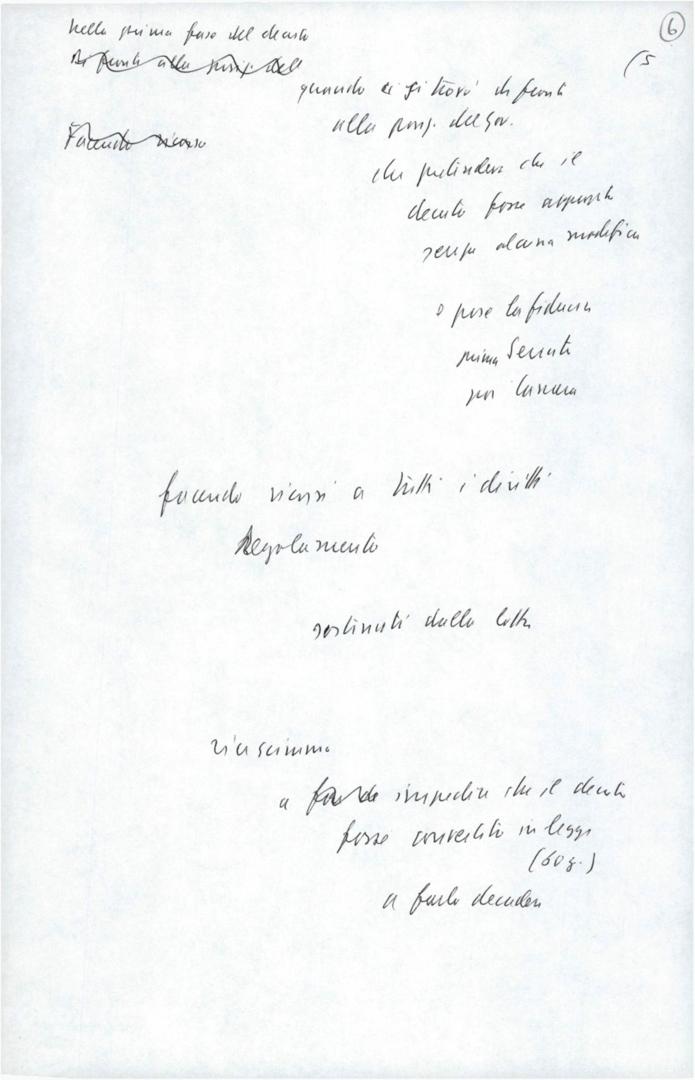 6
(5
nella prima fase del decreto
Di fronte alla posiz. del
quando ci si trovò di fronte
alla posiz. del Gov.
Facendo ricorso
che pretendeva che il
decreto fosse approvato
senza alcuna modifica
e pose la fiducia
prima Senato
poi Camera
facendo ricorso a tutti i diritti
Regolamento
sostenuti dalla lotta
riuscimmo
a impedire che il decreto
fosse convertito in legge
(60 g.)
a farlo decadere